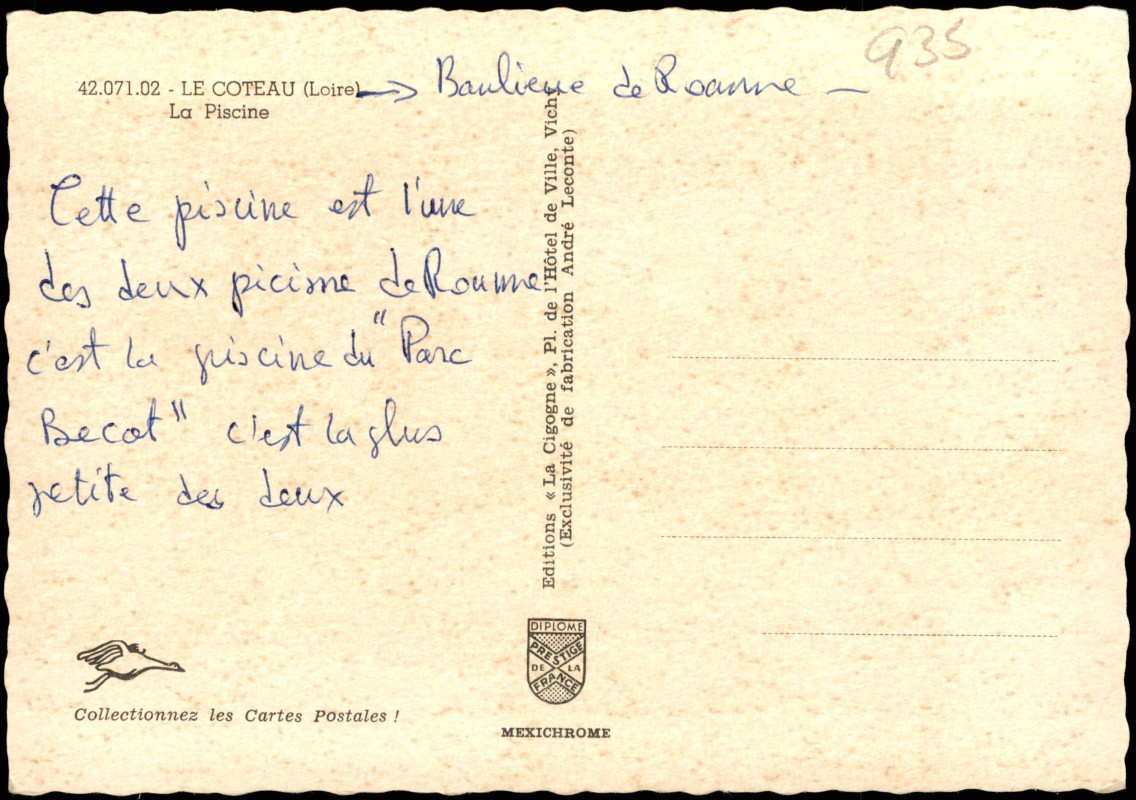 935
42.071.02 - LE COTEAU (Loire) → Banlieue de Roanne –
La Piscine
Cette piscine est l'une
des deux picisne de Roanne
c'est la piscine du "Parc
Becot" c'est la plus
petite des deux
Editions « La Cigogne », Pl. de l'Hôtel de Ville, Vichy
(Exclusivité de fabrication André Leconte)
DIPLOME
PRESTIGE
DE LA
FRANCE
Collectionnez les Cartes Postales !
MEXICHROME